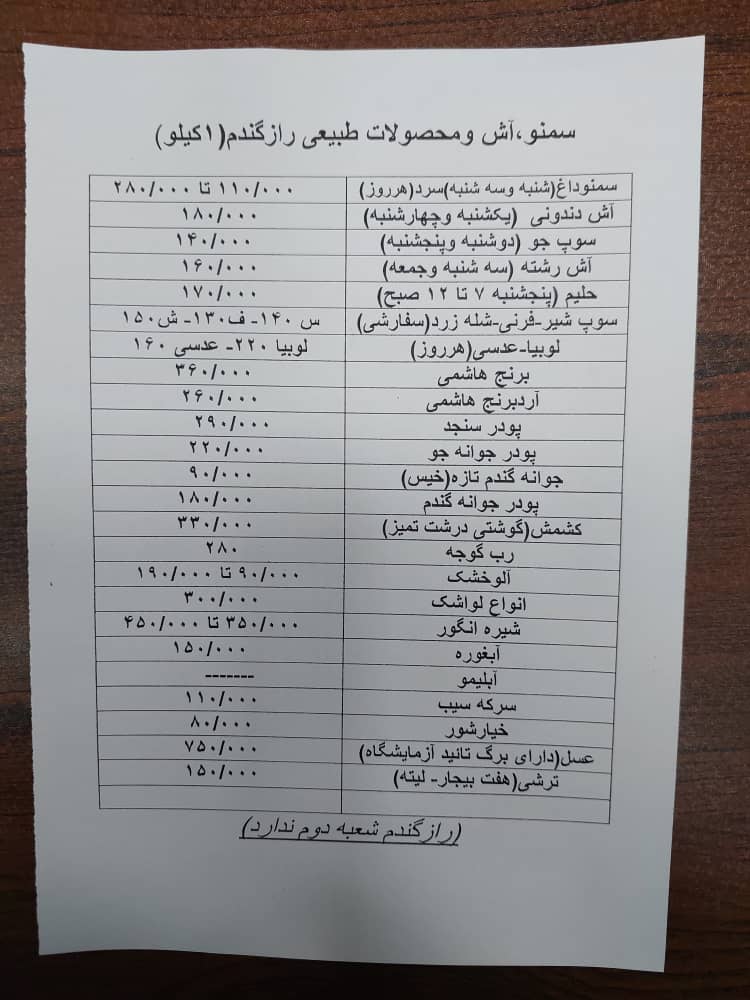 سمنو،آش ومحصولات طبیعی رازگندم(۱کیلو)
سمنوداغ(شنبه وسه شنبه)سرد(هرروز) ۱۱۰/۰۰۰ تا ۲۸۰/۰۰۰
آش دندونی (یکشنبه وچهارشنبه) ۱۸۰/۰۰۰
سوپ جو (دوشنبه وپنجشنبه) ۱۴۰/۰۰۰
آش رشته (سه شنبه وجمعه) ۱۶۰/۰۰۰
حلیم (پنجشنبه ۷ تا ۱۲ صبح) ۱۷۰/۰۰۰
سوپ شیر-فرنی-شله زرد(سفارشی) س ۱۴۰- ف۱۳۰- ش۱۵۰
لوبیا-عدسی(هرروز) لوبیا ۲۲۰- عدسی ۱۶۰
برنج هاشمی ۳۶۰/۰۰۰
آردبرنج هاشمی ۲۶۰/۰۰۰
پودر سنجد ۲۹۰/۰۰۰
پودر جوانه جو ۲۲۰/۰۰۰
جوانه گندم تازه(خیس) ۹۰/۰۰۰
پودر جوانه گندم ۱۸۰/۰۰۰
کشمش(گوشتی درشت تمیز) ۳۳۰/۰۰۰
رب گوجه ۲۸۰
آلوخشک ۹۰/۰۰۰ تا ۱۹۰/۰۰۰
انواع لواشک ۳۰۰/۰۰۰
شیره انگور ۳۵۰/۰۰۰ تا ۴۵۰/۰۰۰
آبغوره ۱۵۰/۰۰۰
آبلیمو -------
سرکه سیب ۱۱۰/۰۰۰
خیارشور ۸۰/۰۰۰
عسل(دارای برگ تائید آزمایشگاه) ۷۵۰/۰۰۰
ترشی(هفت بیجار- لیته) ۱۵۰/۰۰۰
(رازگندم شعبه دوم ندارد)